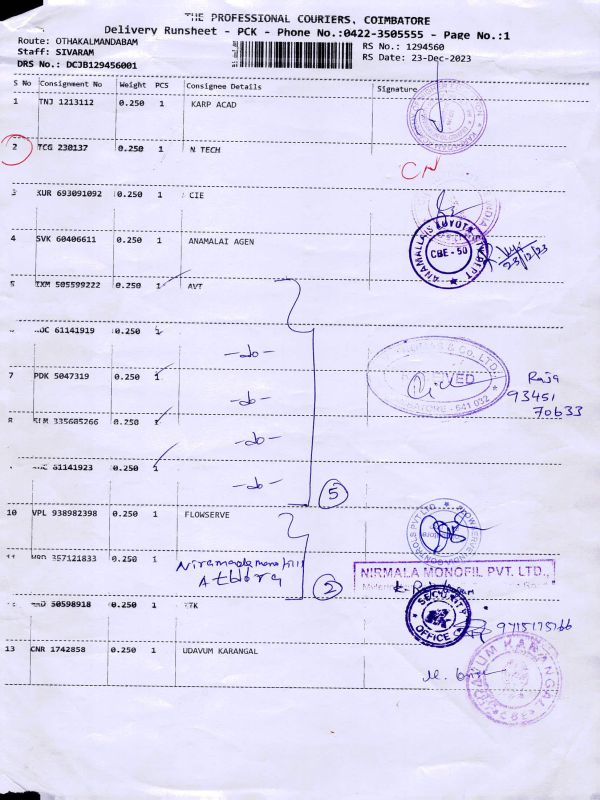 THE PROFESSIONAL COURIERS, COIMBATORE
Delivery Runsheet - PCK - Phone No.:0422-3505555 - Page No.:1
Route: OTHAKALMANDABAM
Staff: SIVARAM
DRS No.: DCJB129456001
RS No.: 1294560
RS Date: 23-Dec-2023
S No Consignment No Weight PCS Consignee Details Signature
1 TNJ 1213112 0.250 1 KARP ACAD
2 TCG 230137 0.250 1 N TECH
CN
3 KUR 693091092 0.250 1 CIE
4 SVK 60406611 0.250 1 ANAMALAI AGEN
ANAMALLAIS TOYOTA
CBE - 50
23/12/23
5 TXM 505599222 0.250 1 AVT
61141919 0.250 1 -do-
7 PDK 5047319 0.250 1 -do-
& CO. LTD.
COIMBATORE - 641 032
Raja
93451
70633
8 SLM 335605266 0.250 1 -do-
61141923 0.250 1 -do-
5
10 VPL 938982398 0.250 1 FLOWSERVE
11 357121833 0.250 1
2
NIRMALA MONOFIL PVT. LTD.,
50598918 0.250 1 KTK
SECURITY
OFFICE
9715175766
13 CNR 1742858 0.250 1 UDAVUM KARANGAL